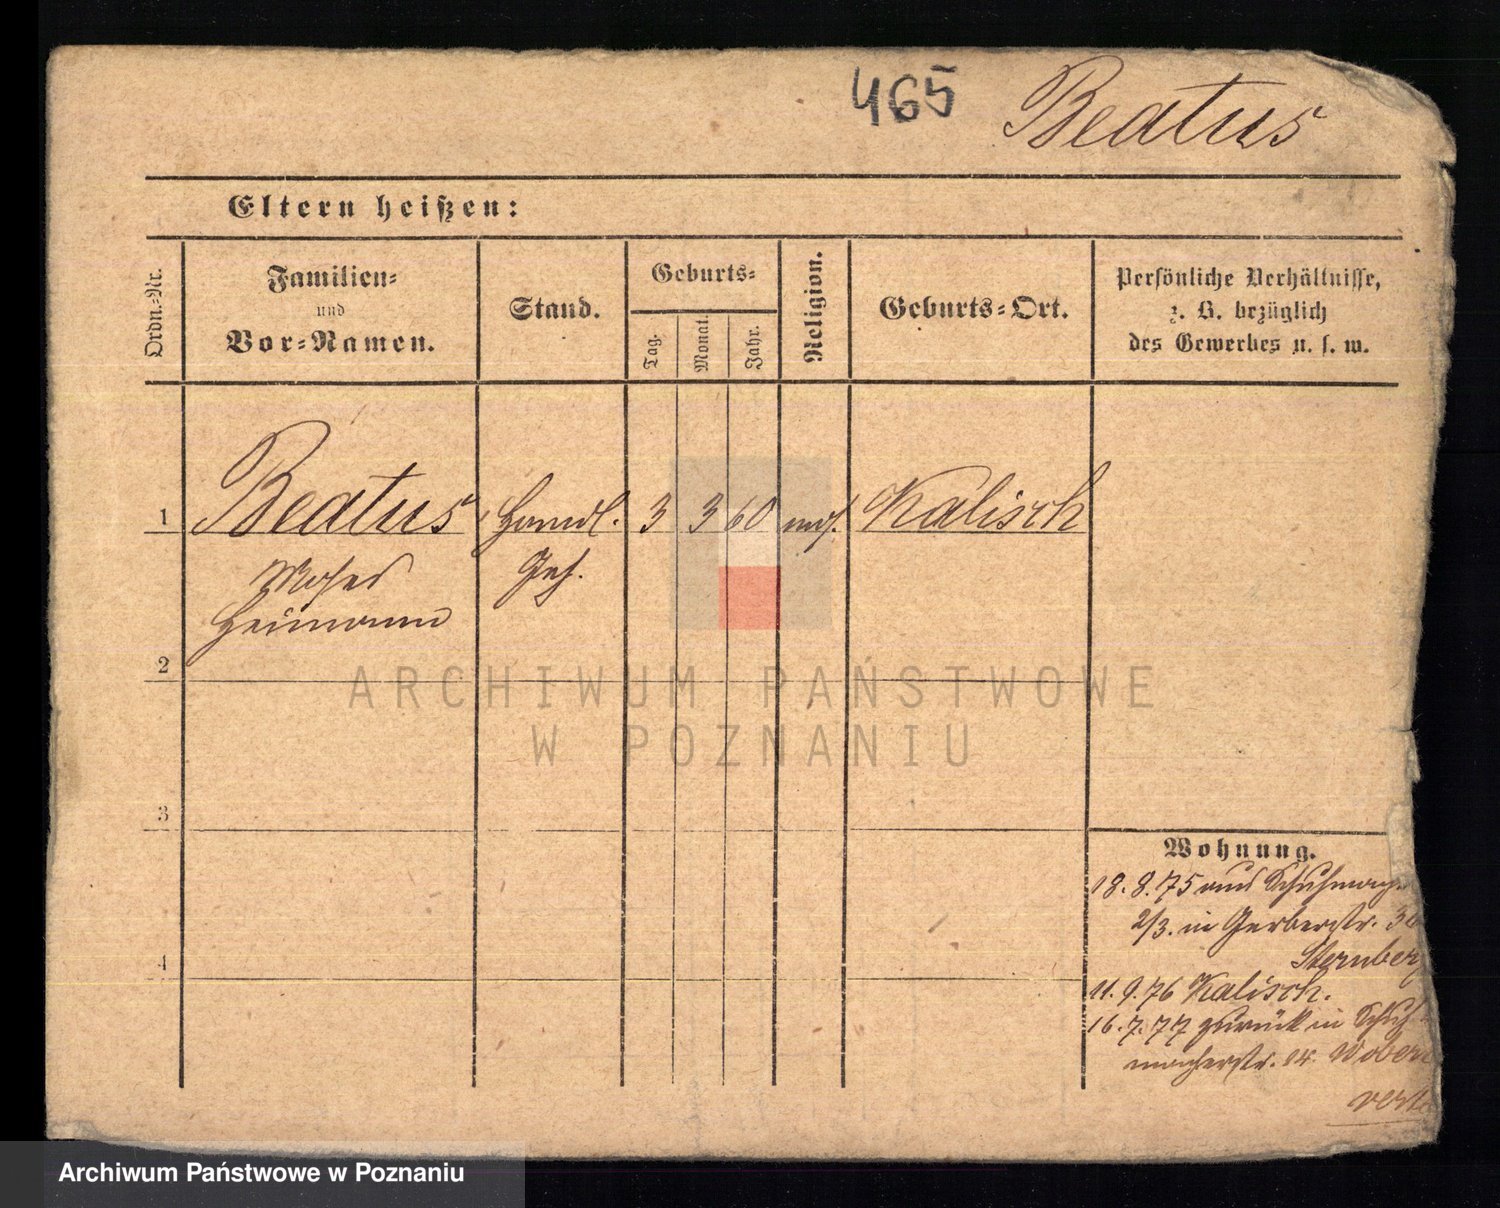 465 Beatus
Eltern heißen:
Ordn.-Nr.
Familien-
und
Vor-Namen.
Stand.
Geburts-
Tag.
Monat.
Jahr.
Religion.
Geburts-Ort.
Persönliche Verhältnisse,
z. B. bezüglich
des Gewerbes u. s. w.
1 Beatus Handl. 3 3 60 mos. Kalisch
Moses Geh.
Heimann
2
3
4
Wohnung.
18.8.75 aus Schuhmach
2/3. in Gerberstr.
Sternberg
11.9.76 Kalisch.
16.7.77 zurück in Schuh
macherstr. 14.
ARCHIWUM PAŃSTWOWE
W POZNANIU
Archiwum Państwowe w Poznaniu